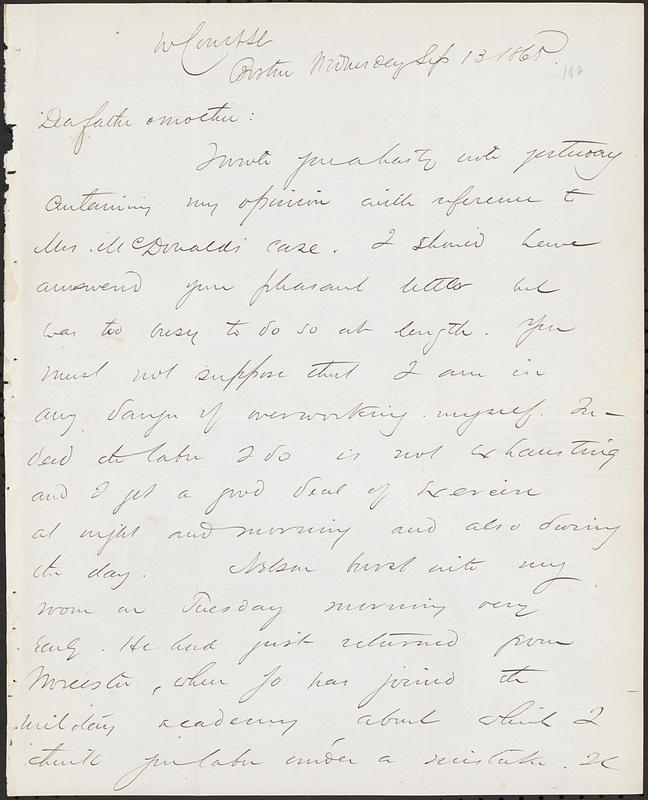 W Court St
Boston Wednesday Sep 13 1865.
102
Dear father & mother:
I wrote you a hasty note yesterday
containing my opinion with reference to
Mrs. McDonald's case. I should have
answered your pleasant letter but
was too busy to do so at length. You
must not suppose that I am in
any danger of overworking myself. In-
deed the labor I do is not exhausting
and I get a good deal of exercise
at night and morning and also during
the day. Nelson burst into my
room on Tuesday morning very
early. He had just returned from
Worcester, where Jo has joined the
military academy about which I
think you labor under a mistake. It